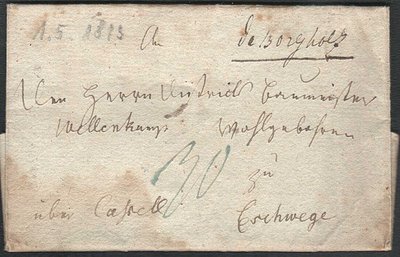 1.5.1813
An de Borgholz
Den Herrn District Baumeister
Wellenkamp Wohlgebohren
30 zu
über Cassell Eschwege